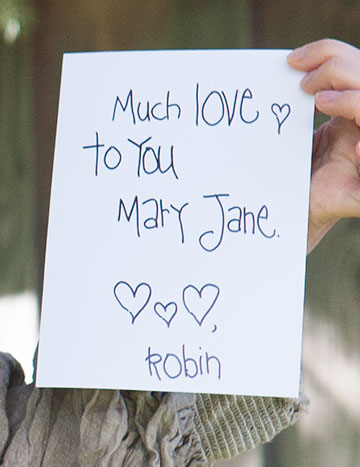 Much love ♡
to You
Mary Jane.
♡♡♡,
Robin